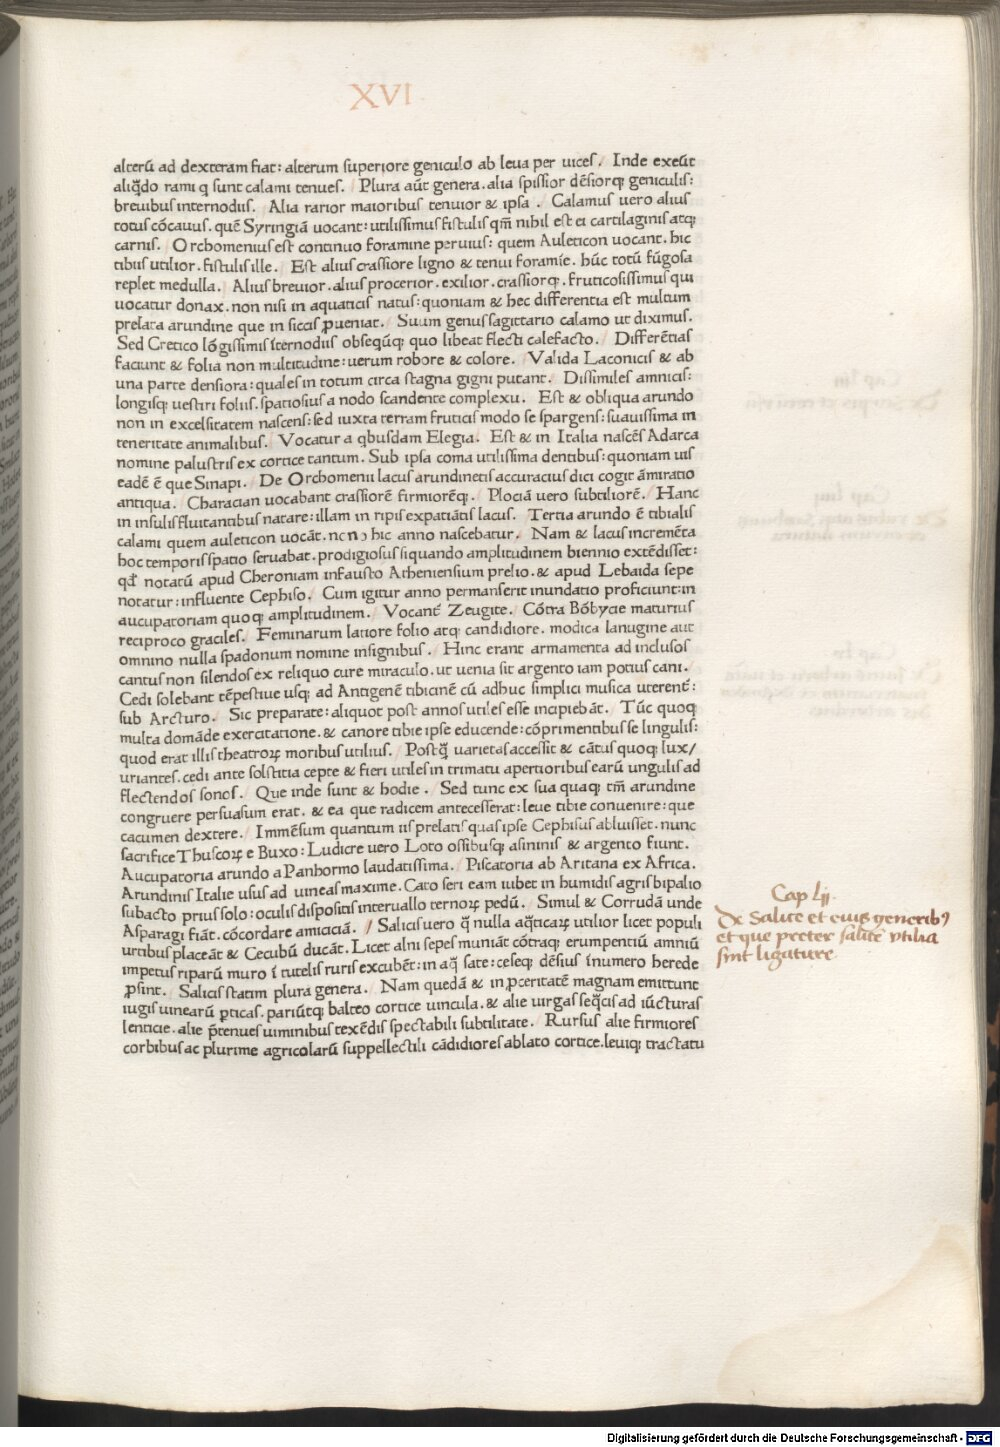 XVI
alterũ ad dexteram fiat: alterum superiore geniculo ab leua per uices. Inde exeũt
aliq̃do rami q sunt calami tenues. Plura aũt genera. alia spissior dẽsiorqꝫ geniculis:
breuibus internodiis. Alia rarior maioribus tenuior & ipsa. Calamus uero alius
totus cõcauus. quẽ Syringiã uocant: utilissimus fistulis qm̃ nihil est ei cartilaginis atqꝫ
carnis. Orchomenius est continuo foramine peruius: quem Auleticon uocant. hic
tibiis utilior. fistulis ille. Est alius crassiore ligno & tenui foramĩe. hũc totũ fũgosa
replet medulla. Alius breuior. alius procerior. exilior. crassiorqꝫ. fruticosissimus qui
uocatur donax. non nisi in aquaticis natus: quoniam & hec differentia est multum
prelata arundine que in siccis ꝓueniat. Suum genus sagittario calamo ut diximus.
Sed Cretico lõgissimis ĩternodiis obseqũqꝫ quo libeat flecti calefacto. Differẽtias
faciunt & folia non multitudine: uerum robore & colore. Valida Laconicis & ab
una parte densiora: quales in totum circa stagna gigni putant. Dissimiles amnicis:
longisqꝫ uestiri foliis. spatiosius a nodo scandente complexu. Est & obliqua arundo
non in excelsitatem nascens: sed iuxta terram fruticis modo se spargens: suauissima in
teneritate animalibus. Vocatur a q̇busdam Elegia. Est & in Italia nascẽs Adarca
nomine palustris ex cortice tantum. Sub ipsa coma utilissima dentibus: quoniam uis
eadẽ ẽ que Sinapi. De Orchomenii lacus arundinetis accuratius dici cogit ãmiratio
antiqua. Characian uocabant crassiorẽ firmiorẽqꝫ. Plociã uero subtiliorẽ. Hanc
in insulis fluitantibus natare: illam in ripis expatiãtis lacus. Tertia arundo ẽ tibialis
calami quem auleticon uocãt. nono hic anno nascebatur. Nam & lacus incremẽta
hoc temporis spatio seruabat. prodigiosus siquando amplitudinem biennio extẽdisset:
qđ notatũ apud Cheroniam infausto Atheniensium prelio. & apud Lebaida sepe
notatur: influente Cephiso. Cum igitur anno permanserit inundatio proficiunt: in
aucupatoriam quoqꝫ amplitudinem. Vocantẽ Zeugite. Cõtra Bõbycie maturius
reciproco graciles. Feminarum latiore folio atqꝫ candidiore. modica lanugine aut
omnino nulla spadonum nomine insignibus. Hinc erant armamenta ad inclusos
cantus non silendos ex reliquo cure miraculo. ut uenia sit argento iam potius cani.
Cedi solebant tẽpestiue usqꝫ ad Antigenẽ tibicinẽ cũ adhuc simplici musica uterentˀ:
sub Arcturo. Sic preparate: aliquot post annos utiles esse incipiebãt. Tũc quoqꝫ
multa domãde exercitatione. & canore tibie ipse educende: cõprimentibus se lingulis:
quod erat illis theatroꝝ moribus utilius. Postq̃ uarietas accessit & cãtus quoqꝫ lux/
uriantes. cedi ante solstitia cepte & fieri utiles in trimatu apertioribus earũ ungulis ad
flectendos sonos. Que inde sunt & hodie. Sed tunc ex sua quaqꝫ tm̃ arundine
congruere persuasum erat. & ea que radicem antecesserat: leue tibie conuenire: que
cacumen dextere. Immẽsum quantum iis prelatis quas ipse Cephisus abluisset. nunc
sacrifice Thuscoꝝ e Buxo: Ludicre uero Loto ossibusqꝫ asininis & argento fiunt.
Aucupatoria arundo a Panhormo laudatissima. Piscatoria ab Aritana ex Africa.
Arundinis Italie usus ad uineas maxime. Cato seri eam iubet in humidis agris bipalio
subacto prius solo: oculis dispositis interuallo ternoꝝ pedũ. Simul & Corrudã unde
Asparagi fiãt. cõcordare amiciciã. Salicis uero q̃ nulla aq̃ticaꝝ utilior licet populi
uitibus placeãt & Cecubũ ducãt. Licet alni sepes muniãt cõtraqꝫ erumpentiũ amniũ
impetus riparũ muro ĩ tutelis ruris excubẽt: in aq̃ sate: ceseqꝫ dẽsius ĩnumero herede
ꝓsint. Salicis statim plura genera. Nam quedã & in ꝓceritatẽ magnam emittunt
iugis uinearũ ꝑticas. pariũtqꝫ balteo cortice uincula. & alie uirgas seq̃cis ad iũcturas
lenticie. alie p̃tenues uiminibus texẽdis spectabili subtilitate. Rursus alie firmiores
corbibus ac plurime agricolarũ suppellectili cãdidiores ablato cortice. leuiqꝫ tractatu
Cap Lij.
De Salice et eius generibꝰ
et que preter salicẽ vtilia
sint ligature
Digitalisierung gefördert durch die Deutsche Forschungsgemeinschaft - DFG